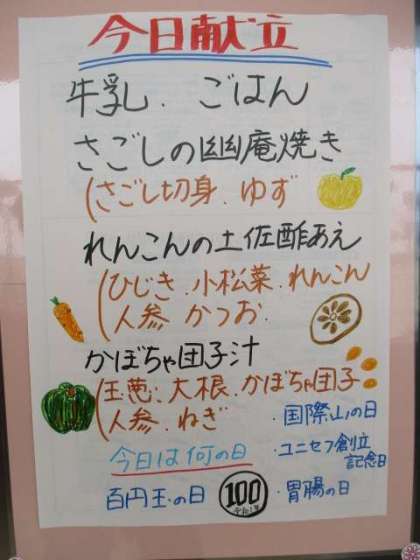 今日献立
牛乳. ごはん
さごしの幽庵焼き
(さごし切身. ゆず
れんこんの土佐酢あえ
(ひじき. 小松菜. れんこん
人参 かつお
かぼちゃ団子汁
(玉葱. 大根. かぼちゃ団子
人参. ねぎ
今日は何の日
・国際山の日
・ユニセフ創立
記念日
百円玉の日
100
・胃腸の日